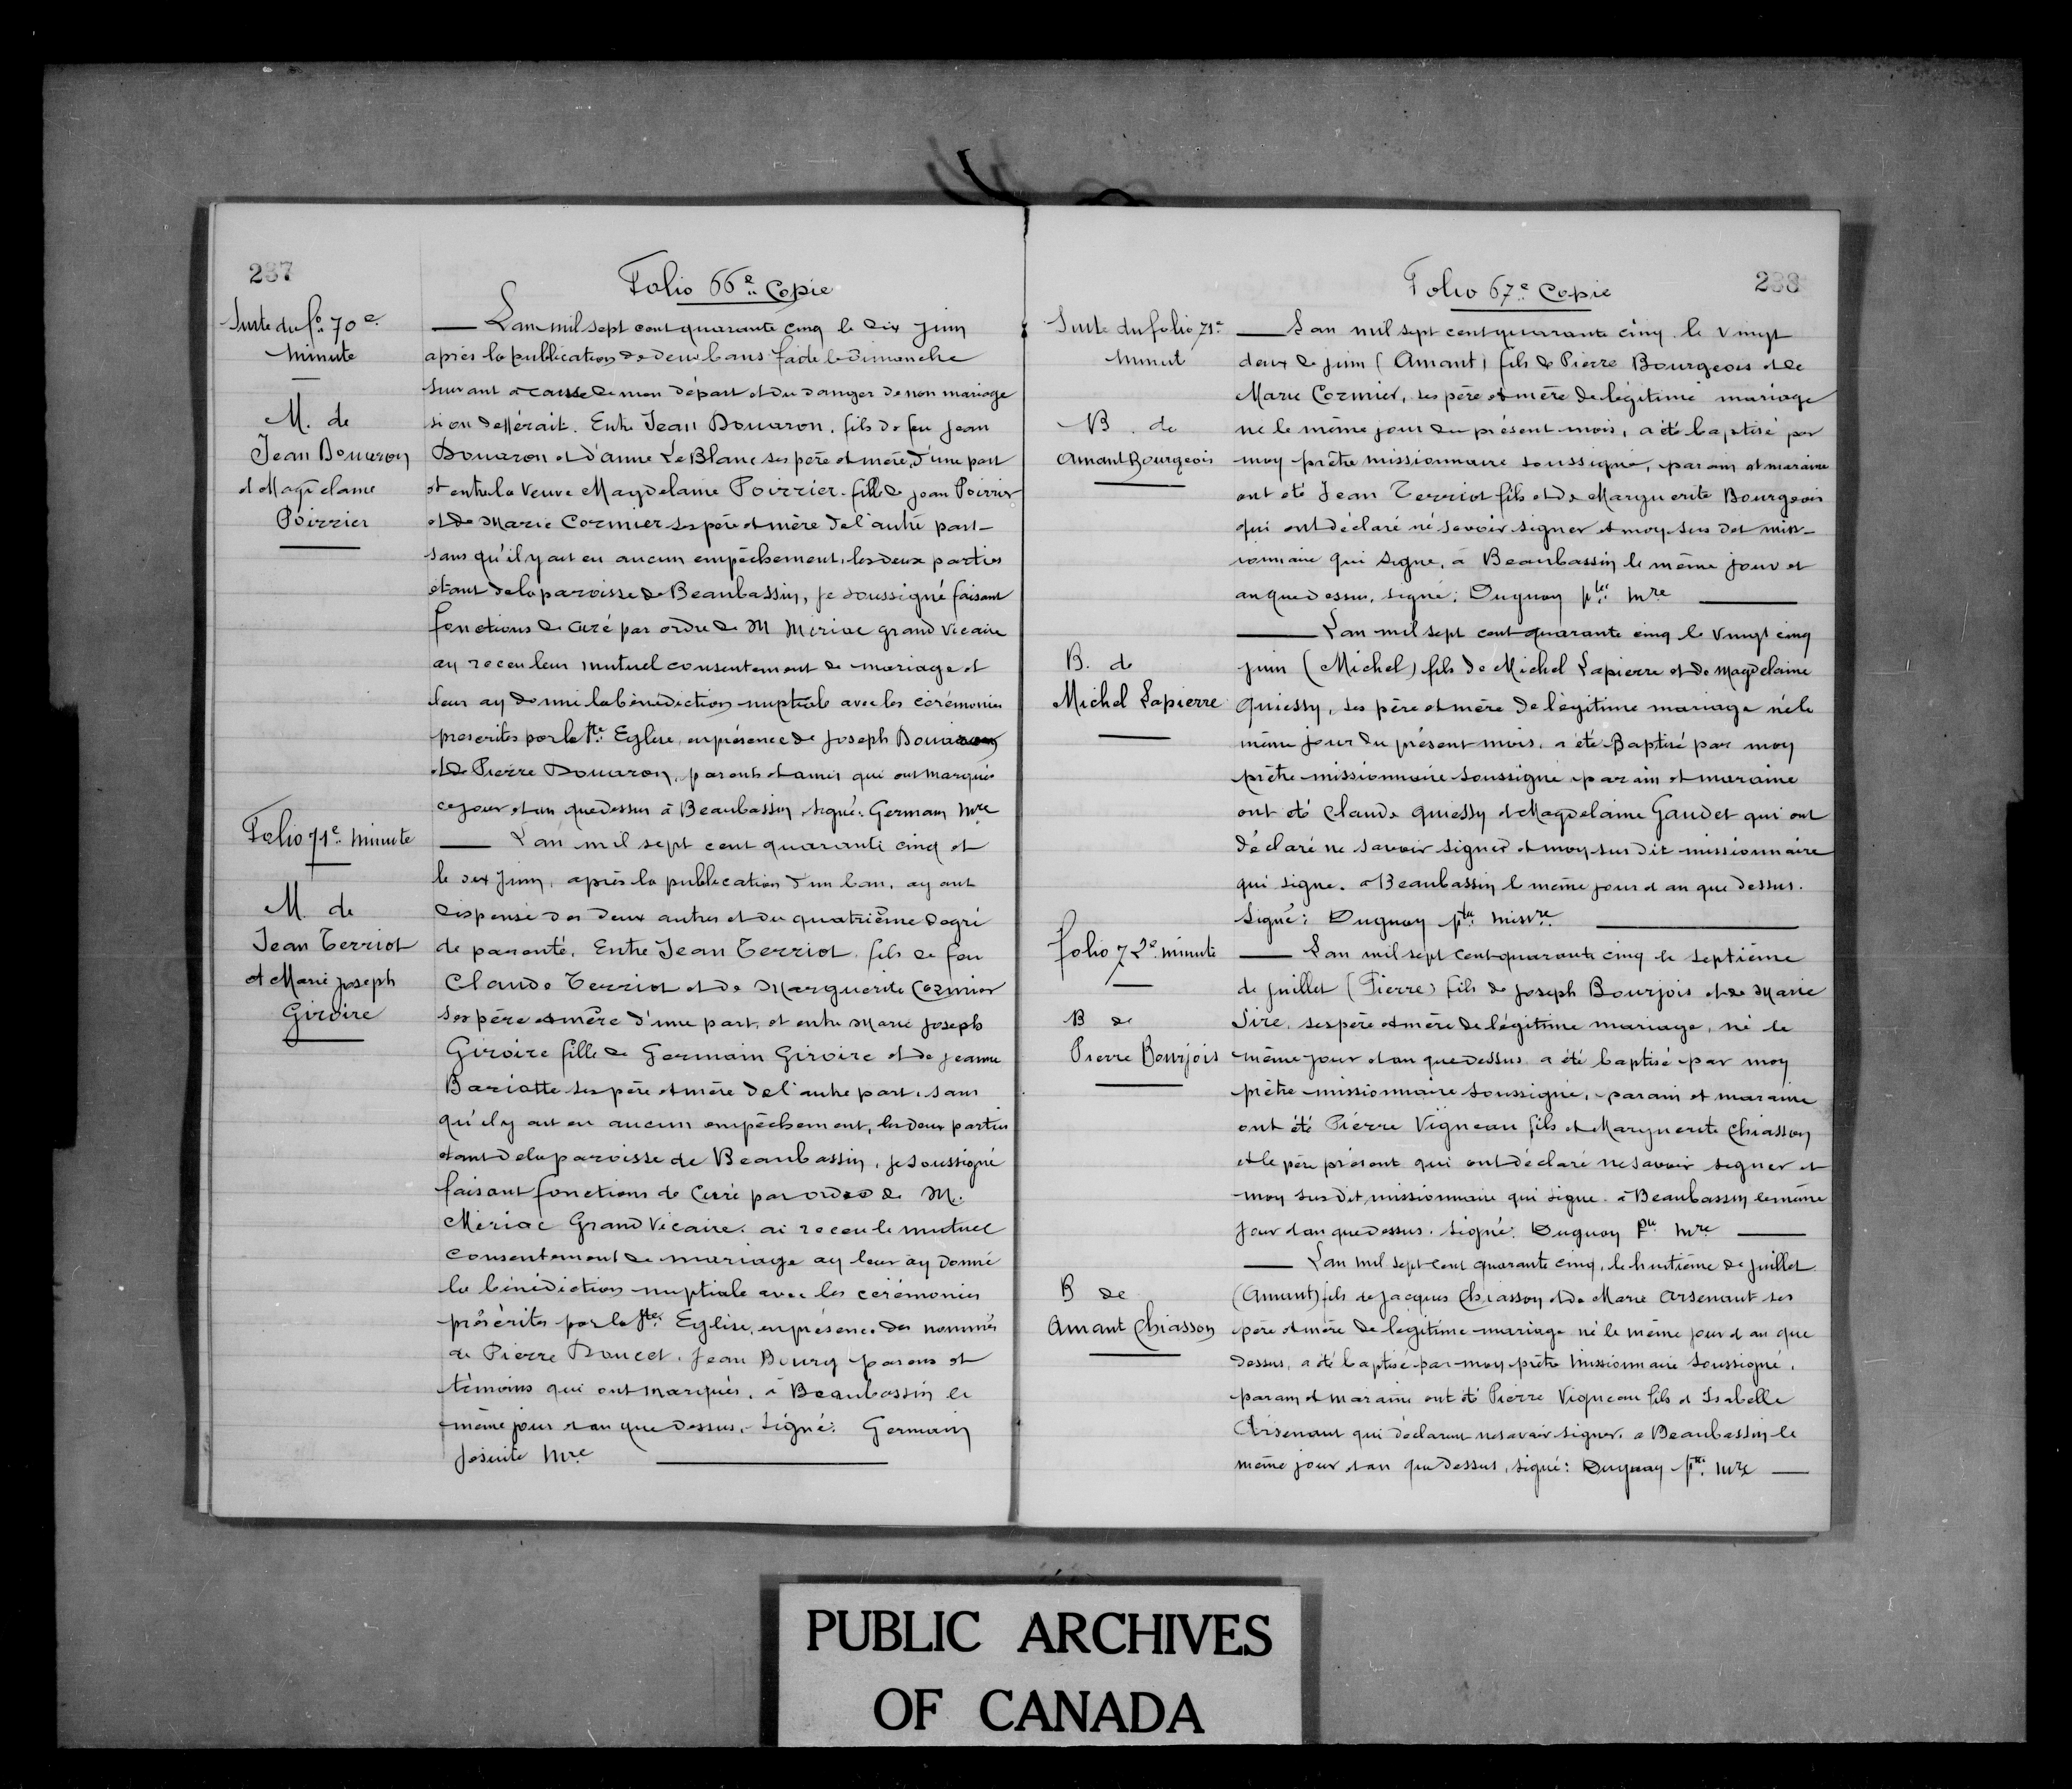 237
Folio 66e Copie
Suite du fo. 70e
minute
M. de
Jean Douaron
et Magdelaine
Poirrier
L'an mil sept cent quarante cinq le dix juin
après la publication de deux bans faite le Dimanche
suivant à cause de mon départ et du danger de non mariage
si on defférait. Entre Jean Douaron, fils de feu Jean
Douaron et d'anne LeBlanc ses père et mère, d'une part
et entre la Veuve Magdelaine Poirrier. fille de Jean Poirrier
et de Marie Cormier ses père et mère de l'autre part
sans qu'il y ait eu aucun empêchement, les deux parties
étant de la paroisse de Beaubassin, je soussigné faisant
fonctions de Curé par ordre de M Miniac grand Vicaire
ay receu leur mutuel consentement de mariage et
leur ay donné la bénédiction nuptiale avec les cérémonies
prescrites par la Ste. Eglise, en présence de Joseph Douaron
et de Pierre Douaron, parents et amis qui ont marqué
ce jour et an que dessus à Beaubassin, signé: Germain Mre
Folio 71e minute
M. de
Jean Terriot
et Marie Joseph
Giroire
L'an mil sept cent quarante cinq et
le dix Juin, après la publication d'un ban, ayant
dispensé des deux autres et du quatrième degré
de parenté. Entre Jean Terriot, fils de feu
Claude Terriot et de Marguerite Cormier
ses père et mère d'une part, et entre Marie Joseph
Giroire fille de Germain Giroire et de Jeanne
Bariotte ses père et mère de l'autre part, sans
qu'il y ait eu aucun empêchement, les deux parties
étant de la paroisse de Beaubassin, je soussigné
faisant fonctions de Curé par ordre de M.
Miniac Grand Vicaire. ai receu le mutuel
Consentement de mariage ay leur ay donné
la bénédiction nuptiale avec les cérémonies
préscrites par la Ste. Eglise, en présence des nommés
de Pierre Doucet, Jean Bourg parens et
témoins qui ont marqués, à Beaubassin le
même jour et an que dessus, signé: Germain
Jésuite Mre
Folio 67e Copie
238
Suite du folio 71e
minut
B. de
Amant Bourgeois
L'an mil sept cent quarante cinq le vingt
deux de juin (Amant) fils de Pierre Bourgeois et de
Marie Cormier, ses père et mère de légitime mariage
né le même jour du présent mois, a été baptisé par
moy prêtre missionnaire soussigné, parain et maraine
ont été Jean Terriot fils et de Marguerite Bourgeois
qui ont déclaré né savoir signer et moy sus dit miss-
ionnaire qui signe, à Beaubassin le même jour et
an que dessus, signé: Duguay ptre Mre
B. de
Michel Lapierre
L'an mil sept cent quarante cinq le vingt cinq
juin (Michel) fils de Michel Lapierre et de Magdelaine
Quiessy, ses père et mère de légitime mariage né le
même jour du présent mois, a été Baptisé par moy
prêtre missionnaire soussigné parain et maraine
ont été Claude Quiessy et Magdelaine Gaudet qui ont
déclaré ne savoir signer et moy sus dit missionnaire
qui signe. à Beaubassin le même jour et an que dessus.
Signé: Duguay ptre missre
folio 72e minute
B de
Pierre Bourjois
L'an mil sept cent quarante cinq le septième
de juillet (Pierre) fils de Joseph Bourjois et de Marie
Sire, ses père et mère de légitime mariage, né le
même jour et an que dessus a été baptisé par moy
prêtre missionnaire soussigné, parain et maraine
ont été Pierre Vigneau fils et Marguerite Chiasson
et le père présent qui ont déclaré ne savoir signer et
moy sus dit missionnaire qui signe à Beaubassin le même
jour et an que dessus. signé: Duguay Ptre Mre
B de
Amant Chiasson
L'an mil sept cent quarante cinq, le huitième de juillet
(Amant) fils de Jacques Chiasson et de Marie Arsenaut ses
père et mère de légitime mariage né le même jour et an que
dessus, a été baptisé par moy prêtre missionnaire soussigné,
parain et maraine ont été Pierre Vigneau fils et Isabelle
Arsenaut qui déclarent ne savoir signer, à Beaubassin le
même jour et an que dessus, signé: Duguay Ptre Mre
PUBLIC ARCHIVES
OF CANADA